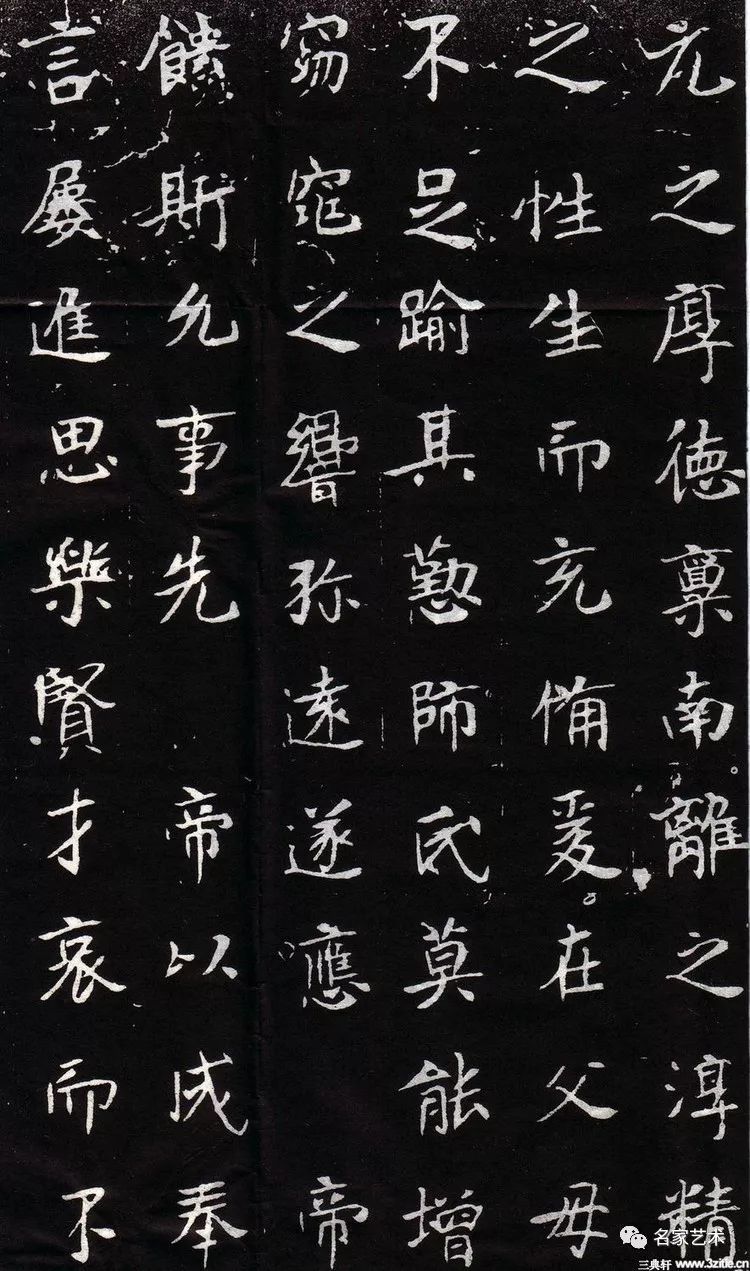 元之厚德稟南離之淳精
之性生而充備爰在父母
不足踰其懃師氏莫能增
窈窕之響弥遠遂應 帝
饋斯允事先 帝以成奉
言屢進思樂賢才哀而不
名家艺术
三典轩 www.3zitie.cn